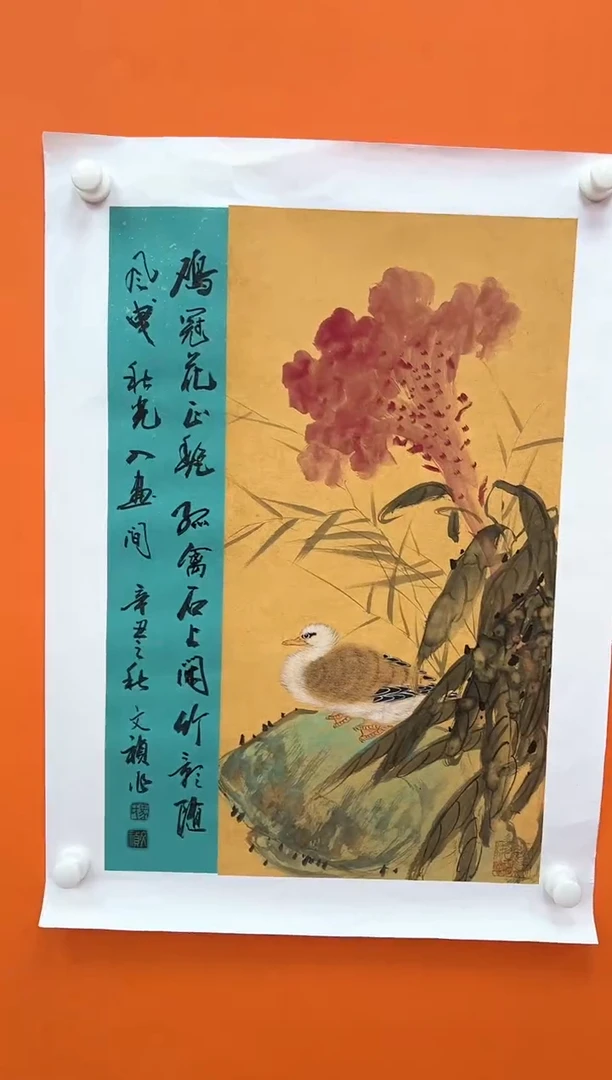 鸡冠花正艳孤禽石上闲竹影随
风曳秋光入画间 辛丑之秋 文祯作